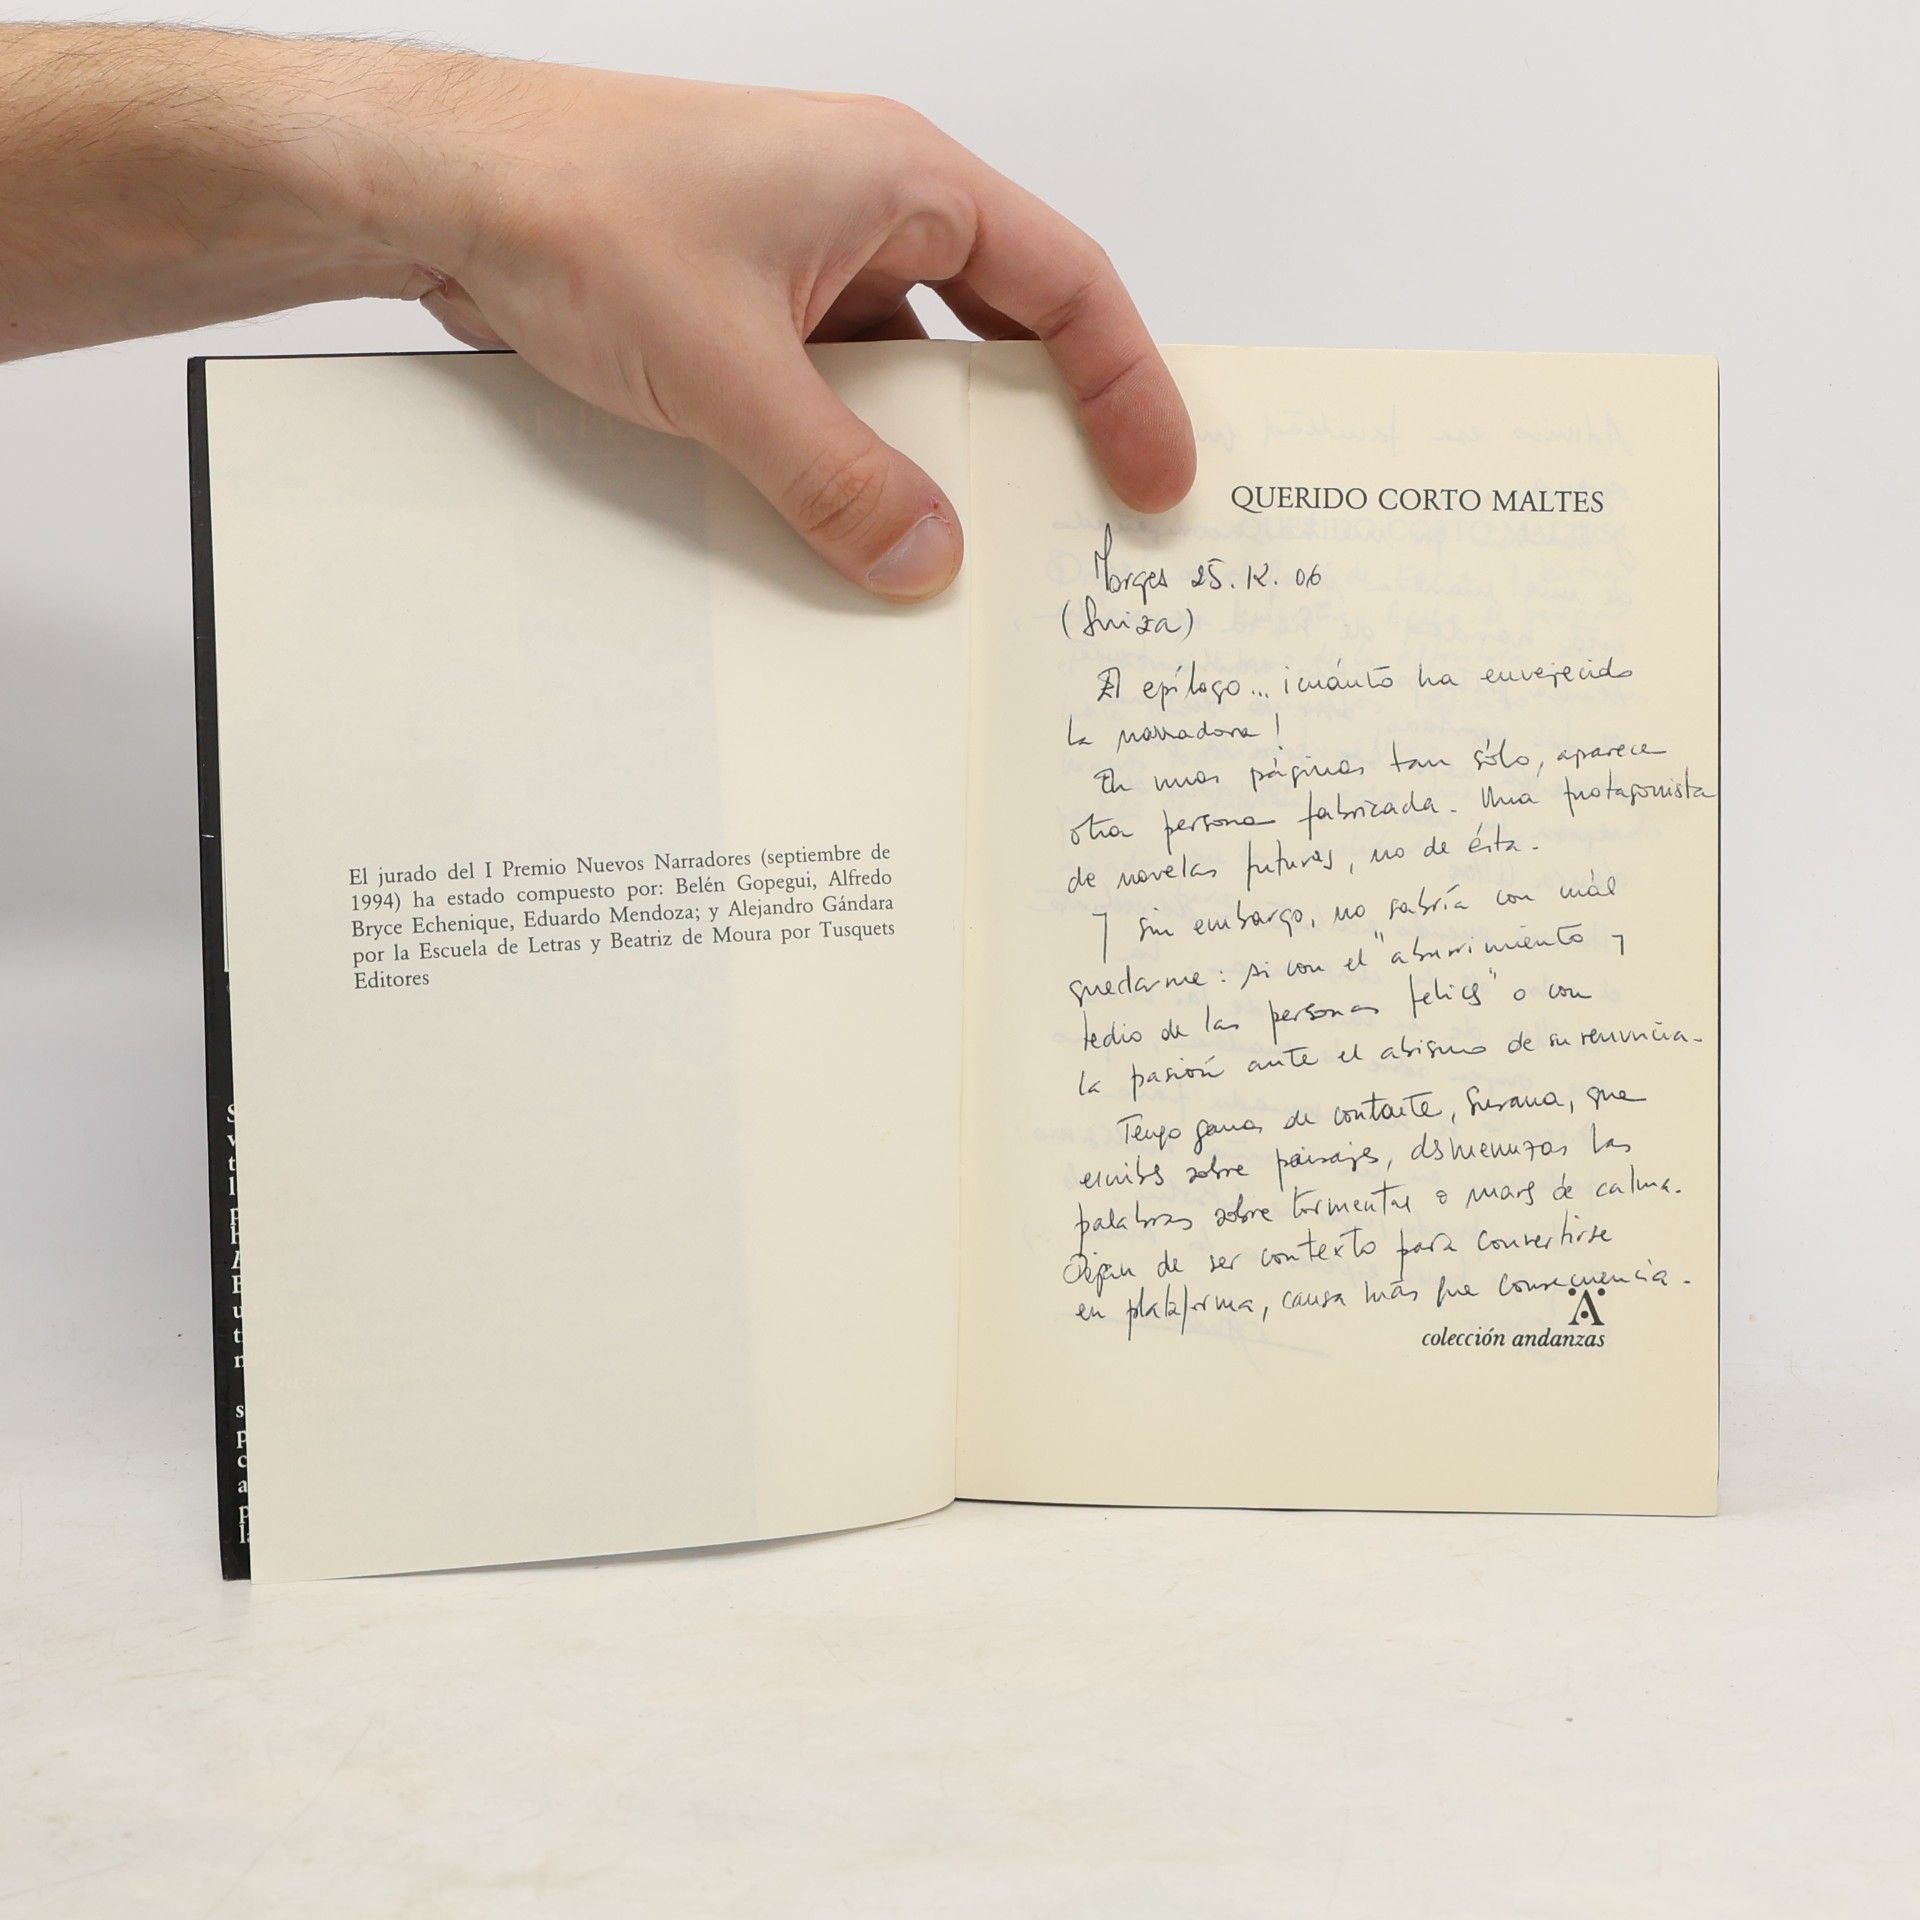 El jurado del I Premio Nuevos Narradores (septiembre de
1994) ha estado compuesto por: Belén Gopegui, Alfredo
Bryce Echenique, Eduardo Mendoza; y Alejandro Gándara
por la Escuela de Letras y Beatriz de Moura por Tusquets
Editores
QUERIDO CORTO MALTES
Morges 25. IX. 06
(Suiza)
El epílogo... ¡cuánto ha envejecido
la narradora!
En unas páginas tan sólo, aparece
otra persona fabricada. Una protagonista
de novelas futuras, no de ésta.
Y sin embargo, no sabría con cuál
quedarme: si con el "aburrimiento y
tedio de las personas felices" o con
la pasión ante el abismo de su renuncia.
Tengo ganas de contarte, Susana, que
escribes sobre paisajes, desmenuzas las
palabras sobre tormentas o mares de calma.
Dejan de ser contexto para convertirse
en plataforma, causa más que consecuencia.
colección andanzas